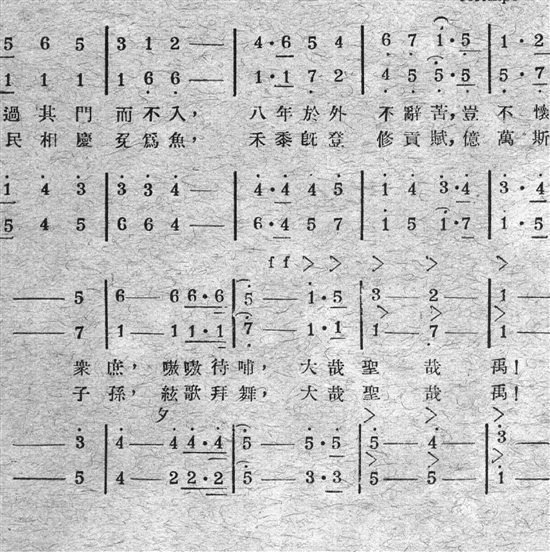 5 6 5 | 3 1 2 — | 4·6 5 4 | 6 7 1·5 | 1·2
1 1 1 | 1 6 6 — | 1·1 7 2 | 4 5 5·5 | 5·7
過其門而不入,八年於外不辭苦,豈不懷
民相慶免爲魚,禾黍旣登修貢賦,億萬斯
1 4 3 | 3 3 4 — | 4·4 4 5 | 1 4 3·4 | 3·4
5 4 5 | 6 6 4 — | 6·4 5 7 | 1 5 1·7 | 1·5
ff > > > > >
— 5 | 6 — 6 6·6 | 5 — 1·5 | 3 — 2 — | 1 —
— 7 | 1 — 1 1·1 | 7 — 1·1 | 1 — 7 — | 1 —
衆庶,嗷嗷待哺,大哉聖哉禹!
子孫,絃歌拜舞,大哉聖哉禹!
— 3 | 4 — 4 4·4 | 5 — 5·5 | 5 — 4 — | 3 —
— 5 | 4 — 2 2·2 | 5 — 3·3 | 5 — 5 — | 1 —